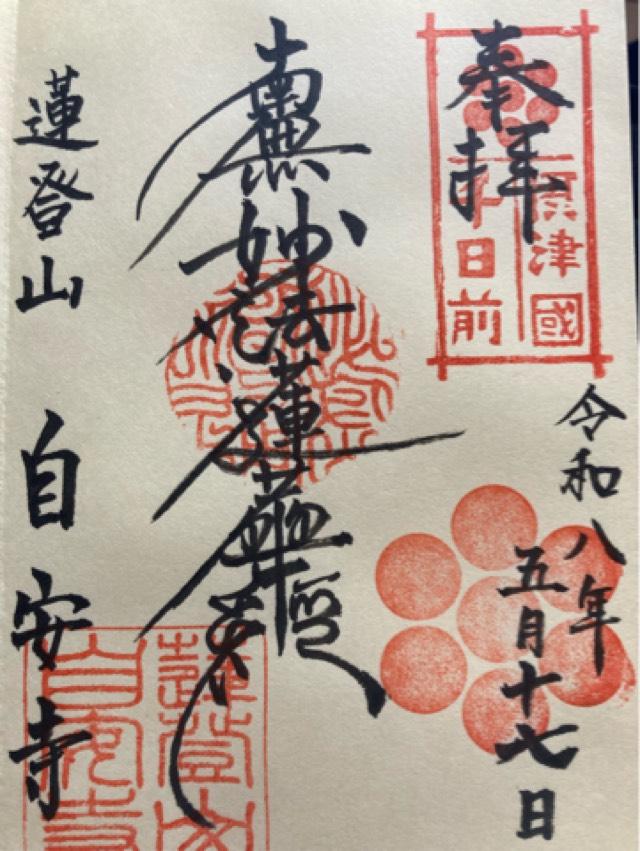 奉拝
摂津國
千日前
令和八年
五月十七日
南無妙法蓮華経
蓮登山
自安寺
蓮登山
自安寺